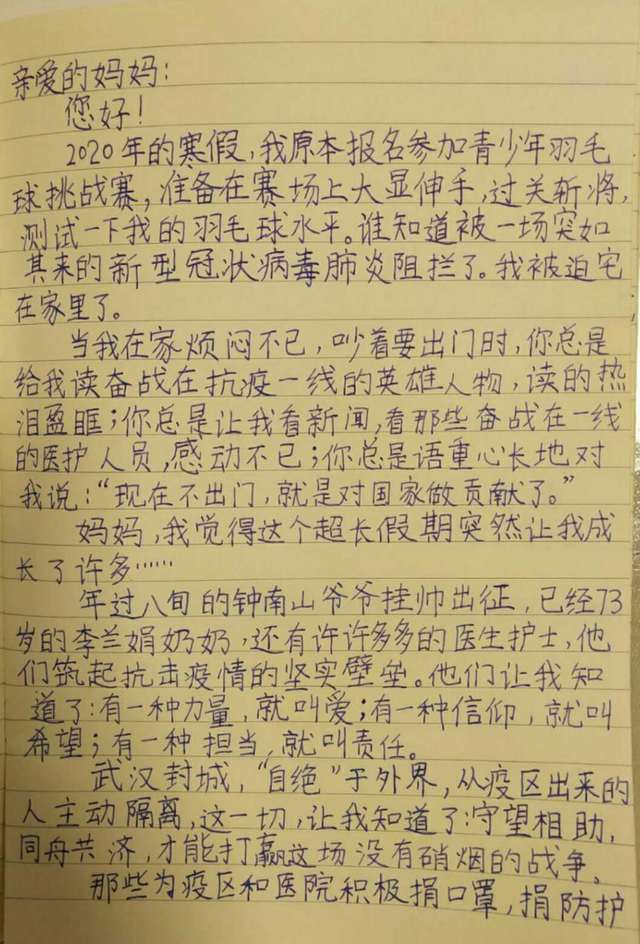 亲爱的妈妈：
您好！
2020年的寒假，我原本报名参加青少年羽毛
球挑战赛，准备在赛场上大显伸手，过关斩将，
测试一下我的羽毛球水平。谁知道被一场突如
其来的新型冠状病毒肺炎阻拦了。我被迫宅
在家里了。
当我在家烦闷不已，吵着要出门时，你总是
给我读奋战在抗疫一线的英雄人物，读的热
泪盈眶；你总是让我看新闻，看那些奋战在一线
的医护人员，感动不已；你总是语重心长地对
我说：“现在不出门，就是对国家做贡献了。”
妈妈，我觉得这个超长假期突然让我成
长了许多……
年过八旬的钟南山爷爷挂帅出征，已经73
岁的李兰娟奶奶，还有许许多多的医生护士，他
们筑起抗击疫情的坚实壁垒。他们让我知
道了：有一种力量，就叫爱；有一种信仰，就叫
希望；有一种担当，就叫责任。
武汉封城，“自绝”于外界，从疫区出来的
人主动隔离，这一切，让我知道了：守望相助，
同舟共济，才能打赢这场没有硝烟的战争。
那些为疫区和医院积极捐口罩，捐防护